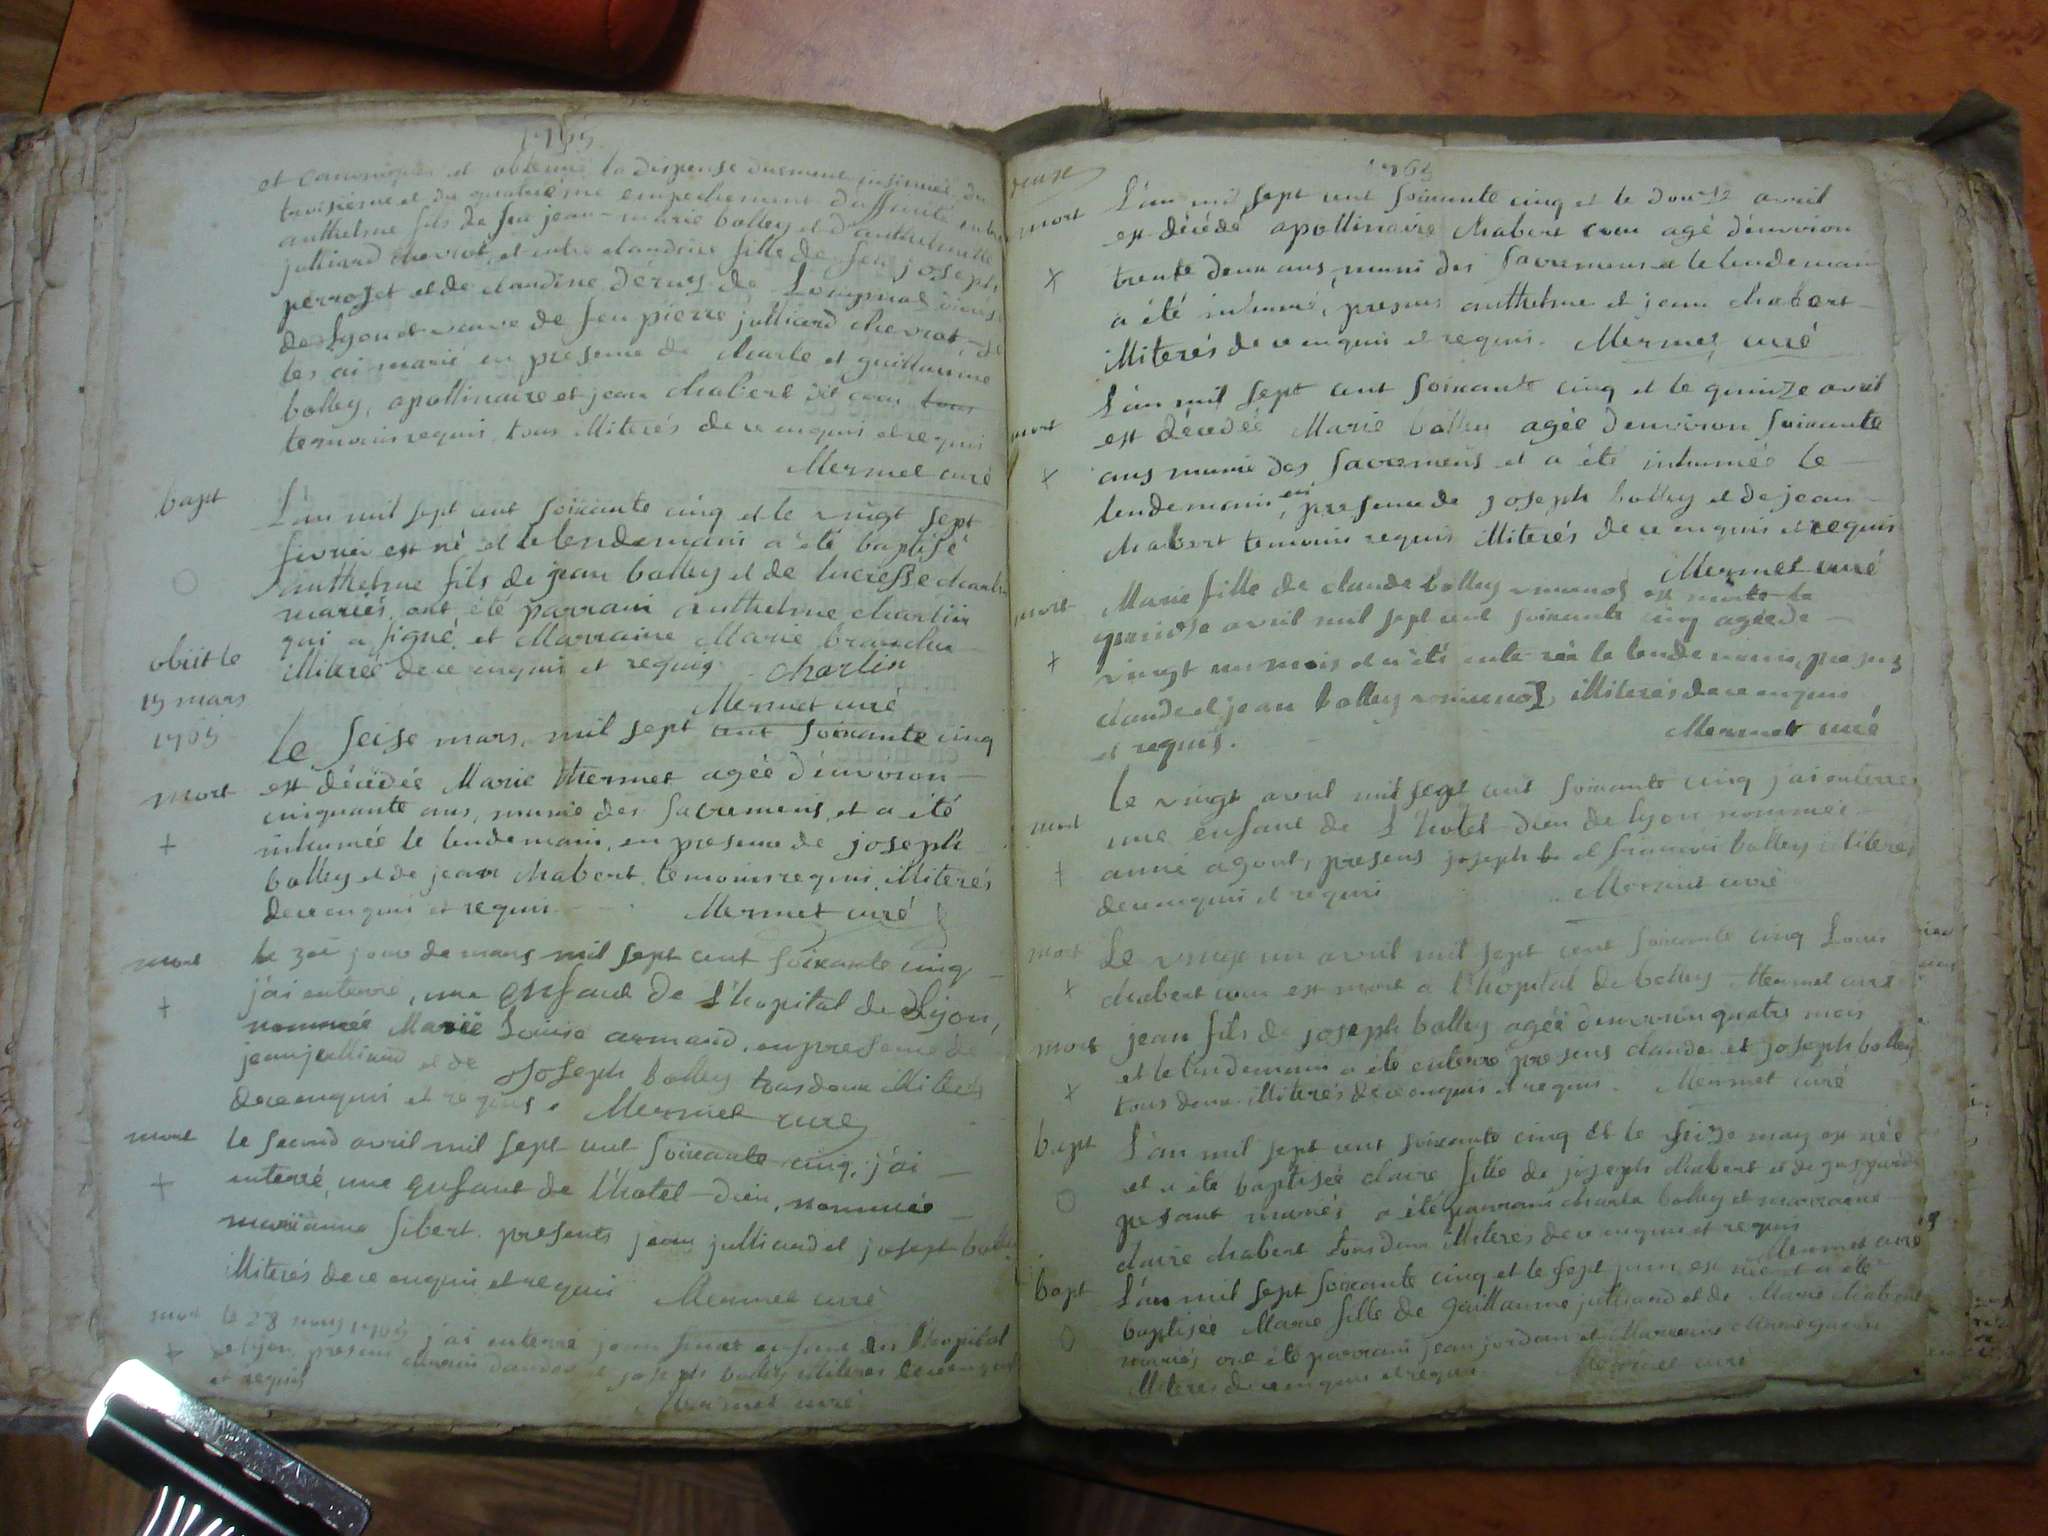 1765
et canoniques et obtenu la dispense duement insinuée du
troisieme et du quatrieme empechement d'affinité entre
anthelme fils de feu jean-marie bolley et d'anthelmette
julliard chevrot, et entre claudine fille de feu joseph
perrozet et de claudine de
de lyon et veuve de feu pierre julliard chevrot, je
les ai marié en presence de charle et guillaume
bolley, apollinaire et jean chabert dit coux tous
temoins requis, tous illiterés de ce enquis et requis
Mermet curé
bapt
L'an mil sept cent soixante cinq et le vingt sept
fevrier est né et le lendemain a été baptisé
anthelme fils de jean bolley et de lucresse
mariés, ont été parrain anthelme charlin
qui a signé, et Marraine Marie
illiterée de ce enquis et requis. charlin
Mermet curé
obiit le
15 mars
1765
Le seise mars, mil sept cent soixante cinq
mort
est décédée Marie Mermet agée d'environ
cinquante ans, munie des sacremens, et a été
+
inhumée le lendemain, en presence de joseph
bolley et de jean chabert temoins requis, illiterés
de ce enquis et requis. Mermet curé
mort
le 30e jour de mars mil sept cent soixante cinq
+
j'ai enterré, une enfant de L'hopital de Lyon,
nommée Marie Louise armand, en presence de
jean julliard et de joseph bolley tous deux illiterés
de ce enquis et requis. Mermet curé
mort
le second avril mil sept cent soixante cinq, j'ai
+
enterré, une enfant de l'hotel-dieu, nommée
marianne sibert. presents jean julliard et joseph bolley
illiterés de ce enquis et requis Mermet curé
mort
le 28 mars 1765 j'ai enterré jean enfant de l'hopital
+
de lyon, presens et joseph bolley illiteres de ce enquis
et requis
Mermet curé
1765
mort
L'an mil sept cent soixante cinq et le douze avril
est décédé apollinaire chabert coux agé d'environ
+
trente deux ans, muni des sacremens et le lendemain
a été inhumé, presens anthelme et jean chabert
illiterés de ce enquis et requis. Mermet curé
mort
L'an mil sept cent soixante cinq et le quinze avril
est décédée Marie bolley agée d'environ soixante
+
ans munie des sacremens et a été inhumée le
lendemain, en presence de joseph bolley et de jean
chabert temoins requis illiterés de ce enquis et requis
Mermet curé
mort
Marie fille de claude bolley est morte le
quinse avril mil sept cent soixante cinq agée de
+
vingt un mois et a été enterrée le lendemain, presens
claude et jean bolley illiterés de ce enquis
et requis. Mermet curé
mort
Le vingt avril mil sept cent soixante cinq j'ai enterré
une enfant de L'hotel-dieu de lyon nommée
+
anne agout, presens joseph b et francois bolley illiterés
de ce enquis et requis Mermet curé
mort
Le vingt un avril mil sept cent soixante cinq Louis
+
chabert coux est mort a l'hopital de belley Mermet curé
mort
jean fils de joseph bolley agée d'environ quatre mois
et le lendemain a été enterré presens claude et joseph bolley
+
tous deux illiterés de ce enquis et requis. Mermet curé
bapt
L'an mil sept cent soixante cinq et le seize may est née
et a été baptisée claire fille de joseph chabert et de gasparde
pesant mariés a été parrain charle bolley et marraine
claire chabert tous deux illiteres de ce enquis et requis
Mermet curé
bapt
L'an mil sept soixante cinq et le sept juin est née et a été
baptisée Marie fille de guillaume julliard et de Marie chabert
mariés ont été parrain jean jordan et Marraine
illiteres de ce enquis et requis Mermet curé